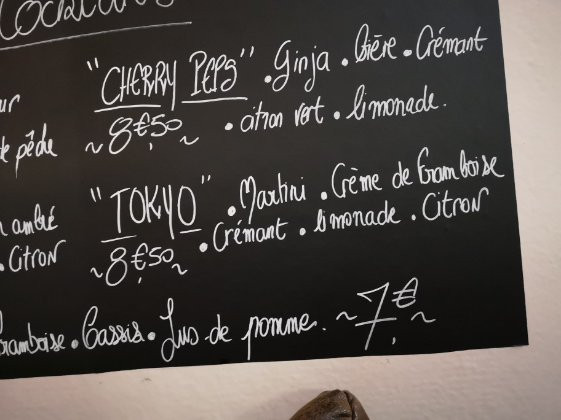 Cocktails
"CHERRY PEPS" • Ginja • Bière • Crémant
~ 8€,50 ~ • citron vert • limonade.
de pêche
"TOKYO" • Martini • Crème de Framboise
ambré
~ 8€,50 ~ • Crémant • limonade • Citron
• Citron
Framboise • Cassis • Jus de pomme. ~ 7€ ~